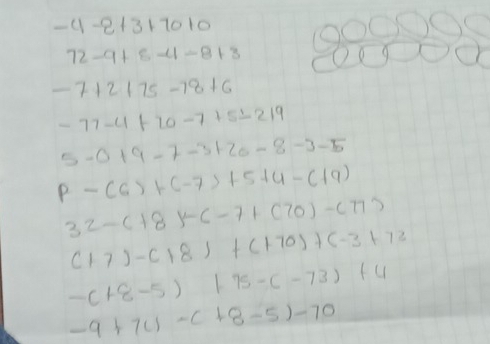 -4-8+3+70+0
72-9+5-4-8+3
-7+2+75-78+6
-77-4+20-7+5-2+9
5-0+9-7-3+20-8-3-5
P-(6)+(-7)+5+4-(+9)
32-(+8)+(-7+(70)-(77)
(+7)-(+8)+(+70)+(-3+73
-(+8-5) +75-(-73)+4
-(+8-5)-70